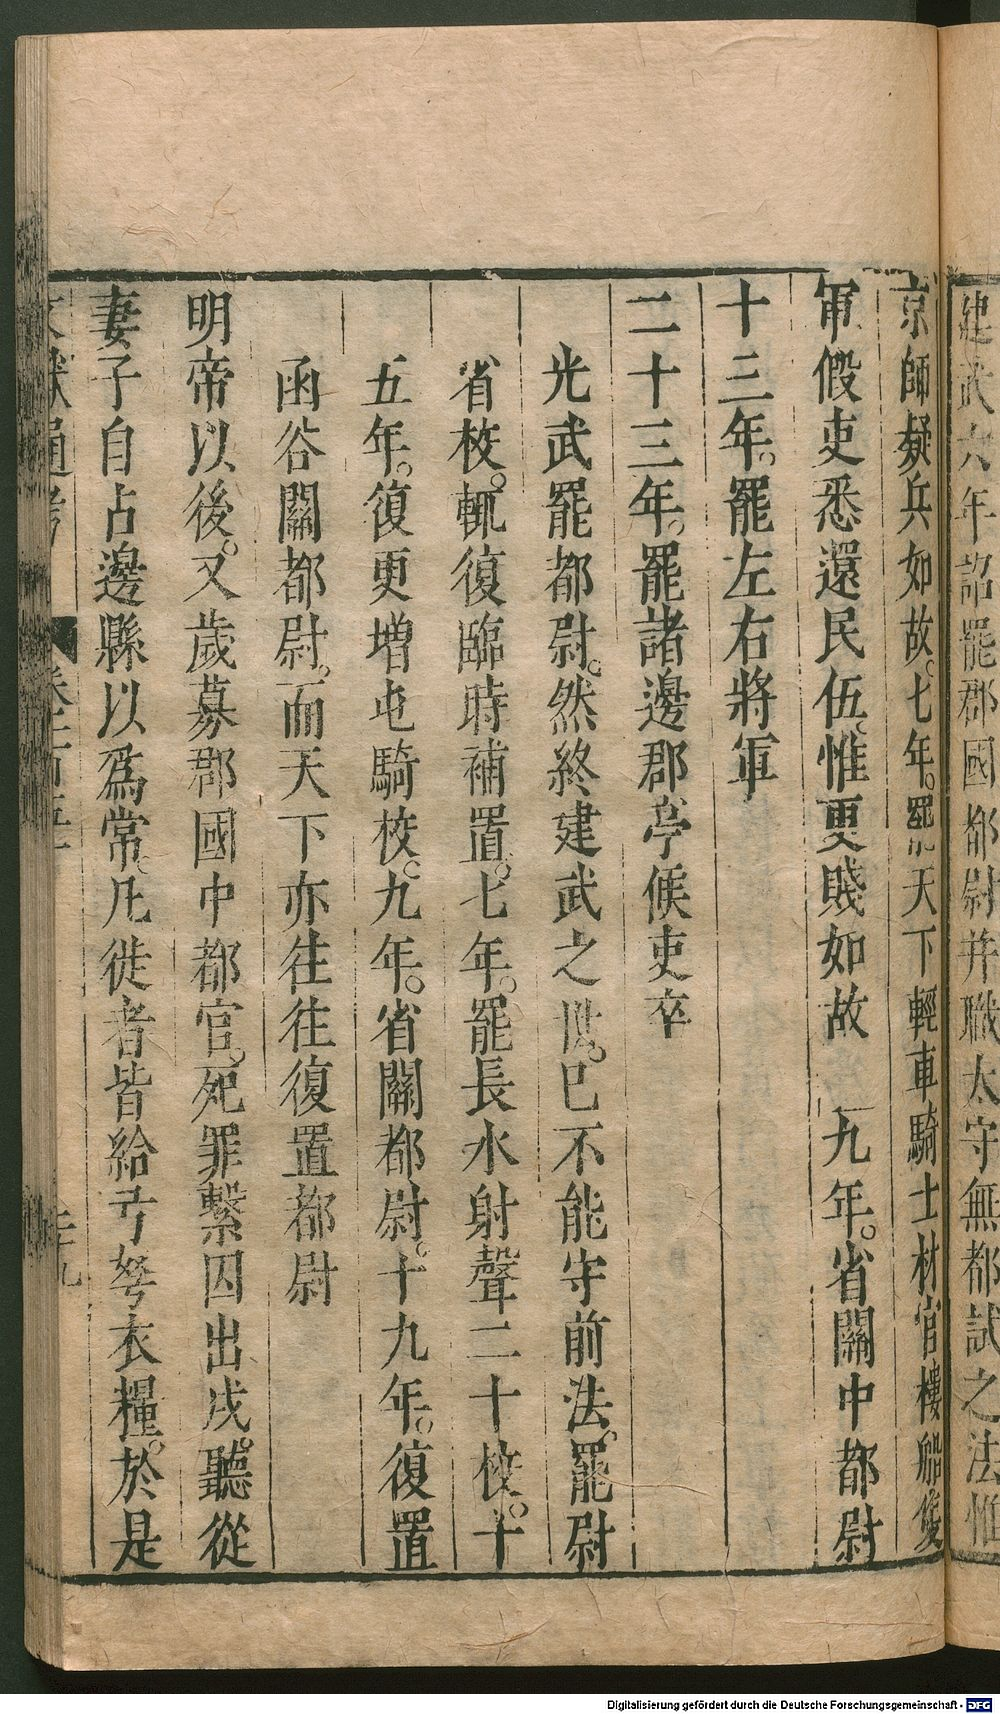 建武六年詔罷郡國都尉并職太守無都試之法惟
京師㯋兵如故。七年。罷天下輕車騎士材官樓船後
軍假吏悉還民伍、惟更賤如故　九年。省關中都尉
十三年。罷左右將軍
二十三年。罷諸邊郡亭候吏卒
光武罷都尉。然終建武之世。已不能守前法。罷尉
省校。輒復臨時補置。七年。罷長水射聲二十校。十
五年。復更增屯騎校。九年。省關都尉。十九年。復置
函谷關都尉。而天下亦往往復置都尉
明帝以後。又歲募郡國中都官。死罪繫囚出戍。聽從
妻子自占邊縣以爲常。凡徙者皆給弓弩衣糧。於是
文獻通考 卷 二十九
Digitalisierung gefördert durch die Deutsche Forschungsgemeinschaft - DFG